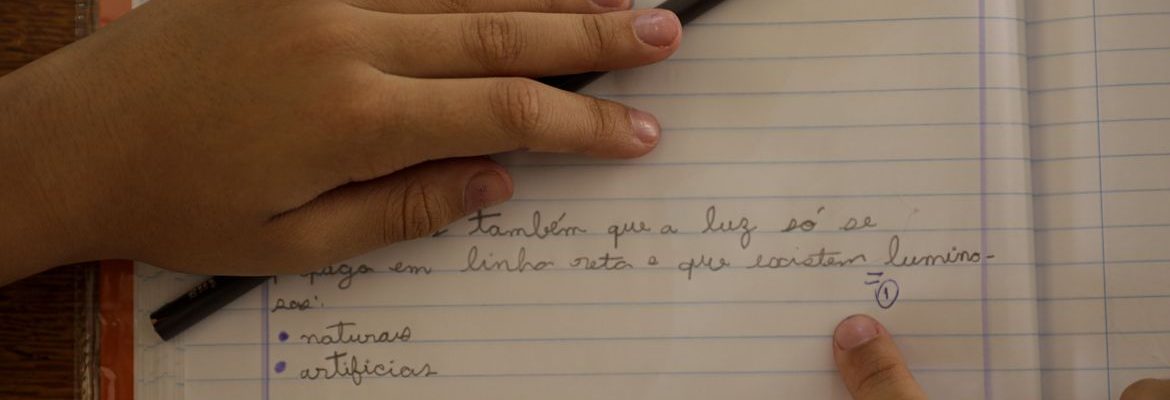 também que a luz só se
em linha reta e que existem lumino-
sas:
• naturais
• artificias
= ①